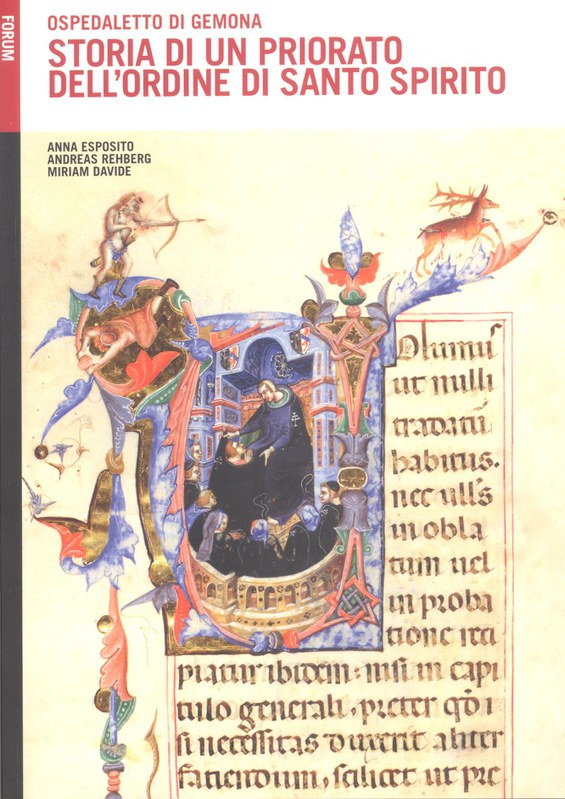 FORUM
OSPEDALETTO DI GEMONA
STORIA DI UN PRIORATO
DELL'ORDINE DI SANTO SPIRITO
ANNA ESPOSITO
ANDREAS REHBERG
MIRIAM DAVIDE
olumus
ut nulli
tradatur
habitus.
nec ullus
in obla
tum uel
in proba
tione reci
piatur ibidem. nisi in capi
tulo generali, preter qd i
si necessitas duxerit aliter
faciendum, scilicet ut pre